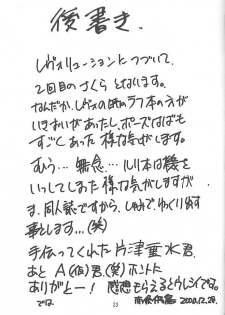 後書き.
レヴォリューションにつづいて、
2回目のさくらとなります。
なんだか、レヴォの時のラフ本の方が
いきおいがあったし、ポーズはばも
すごくあった様な気がします。
むう…無念…ルリ本は機を
いってしまった様な気がしますが
ま、同人誌ですから、しゅみでゆっくり出す
事とします…(笑)
手伝ってくれた片津垂水君、
あとA(仮)君、(笑)ホントに
ありがとー! 感想もらえるとウレシイです。
では。 2000.12.28.
39